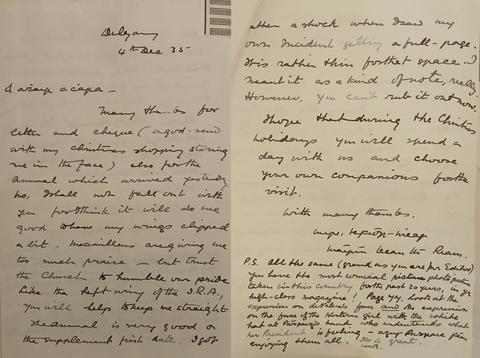 Delgany
4th Dec 35
A
Many thanks for
letter and cheque (a god-send
with my Christmas shopping staring
me in the face) also for the
Annual which arrived yesterday
No, I shall not fall out with
you for I think it will do me
good to have my wings clipped
a bit. Macmillans are giving me
too much praise – but trust
the Church to humble our pride
Like the left wing of the I.R.A.,
you will help to keep me straight.
The annual is very good &
the supplement first rate. I got
rather a shock when I saw my
own Incident getting a full-page.
It is rather thin for that space. I
meant it as a kind of note, really.
However, you can't rub it out now.
I hope that during the Christmas
holidays you will spend a
day with us and choose
your own companions for the
visit.
With many thanks.
P.S. All the same (grand as you are, Mr Editor)
You have the most comical picture photo picture
taken in this country for the past 20 years, in yr
high-class magazine! Page 44. Look at the
expression on face and the expression
on the face of the girl with the white
hat at hand who understands what
her President is feeling –
enjoying them all. It is great.